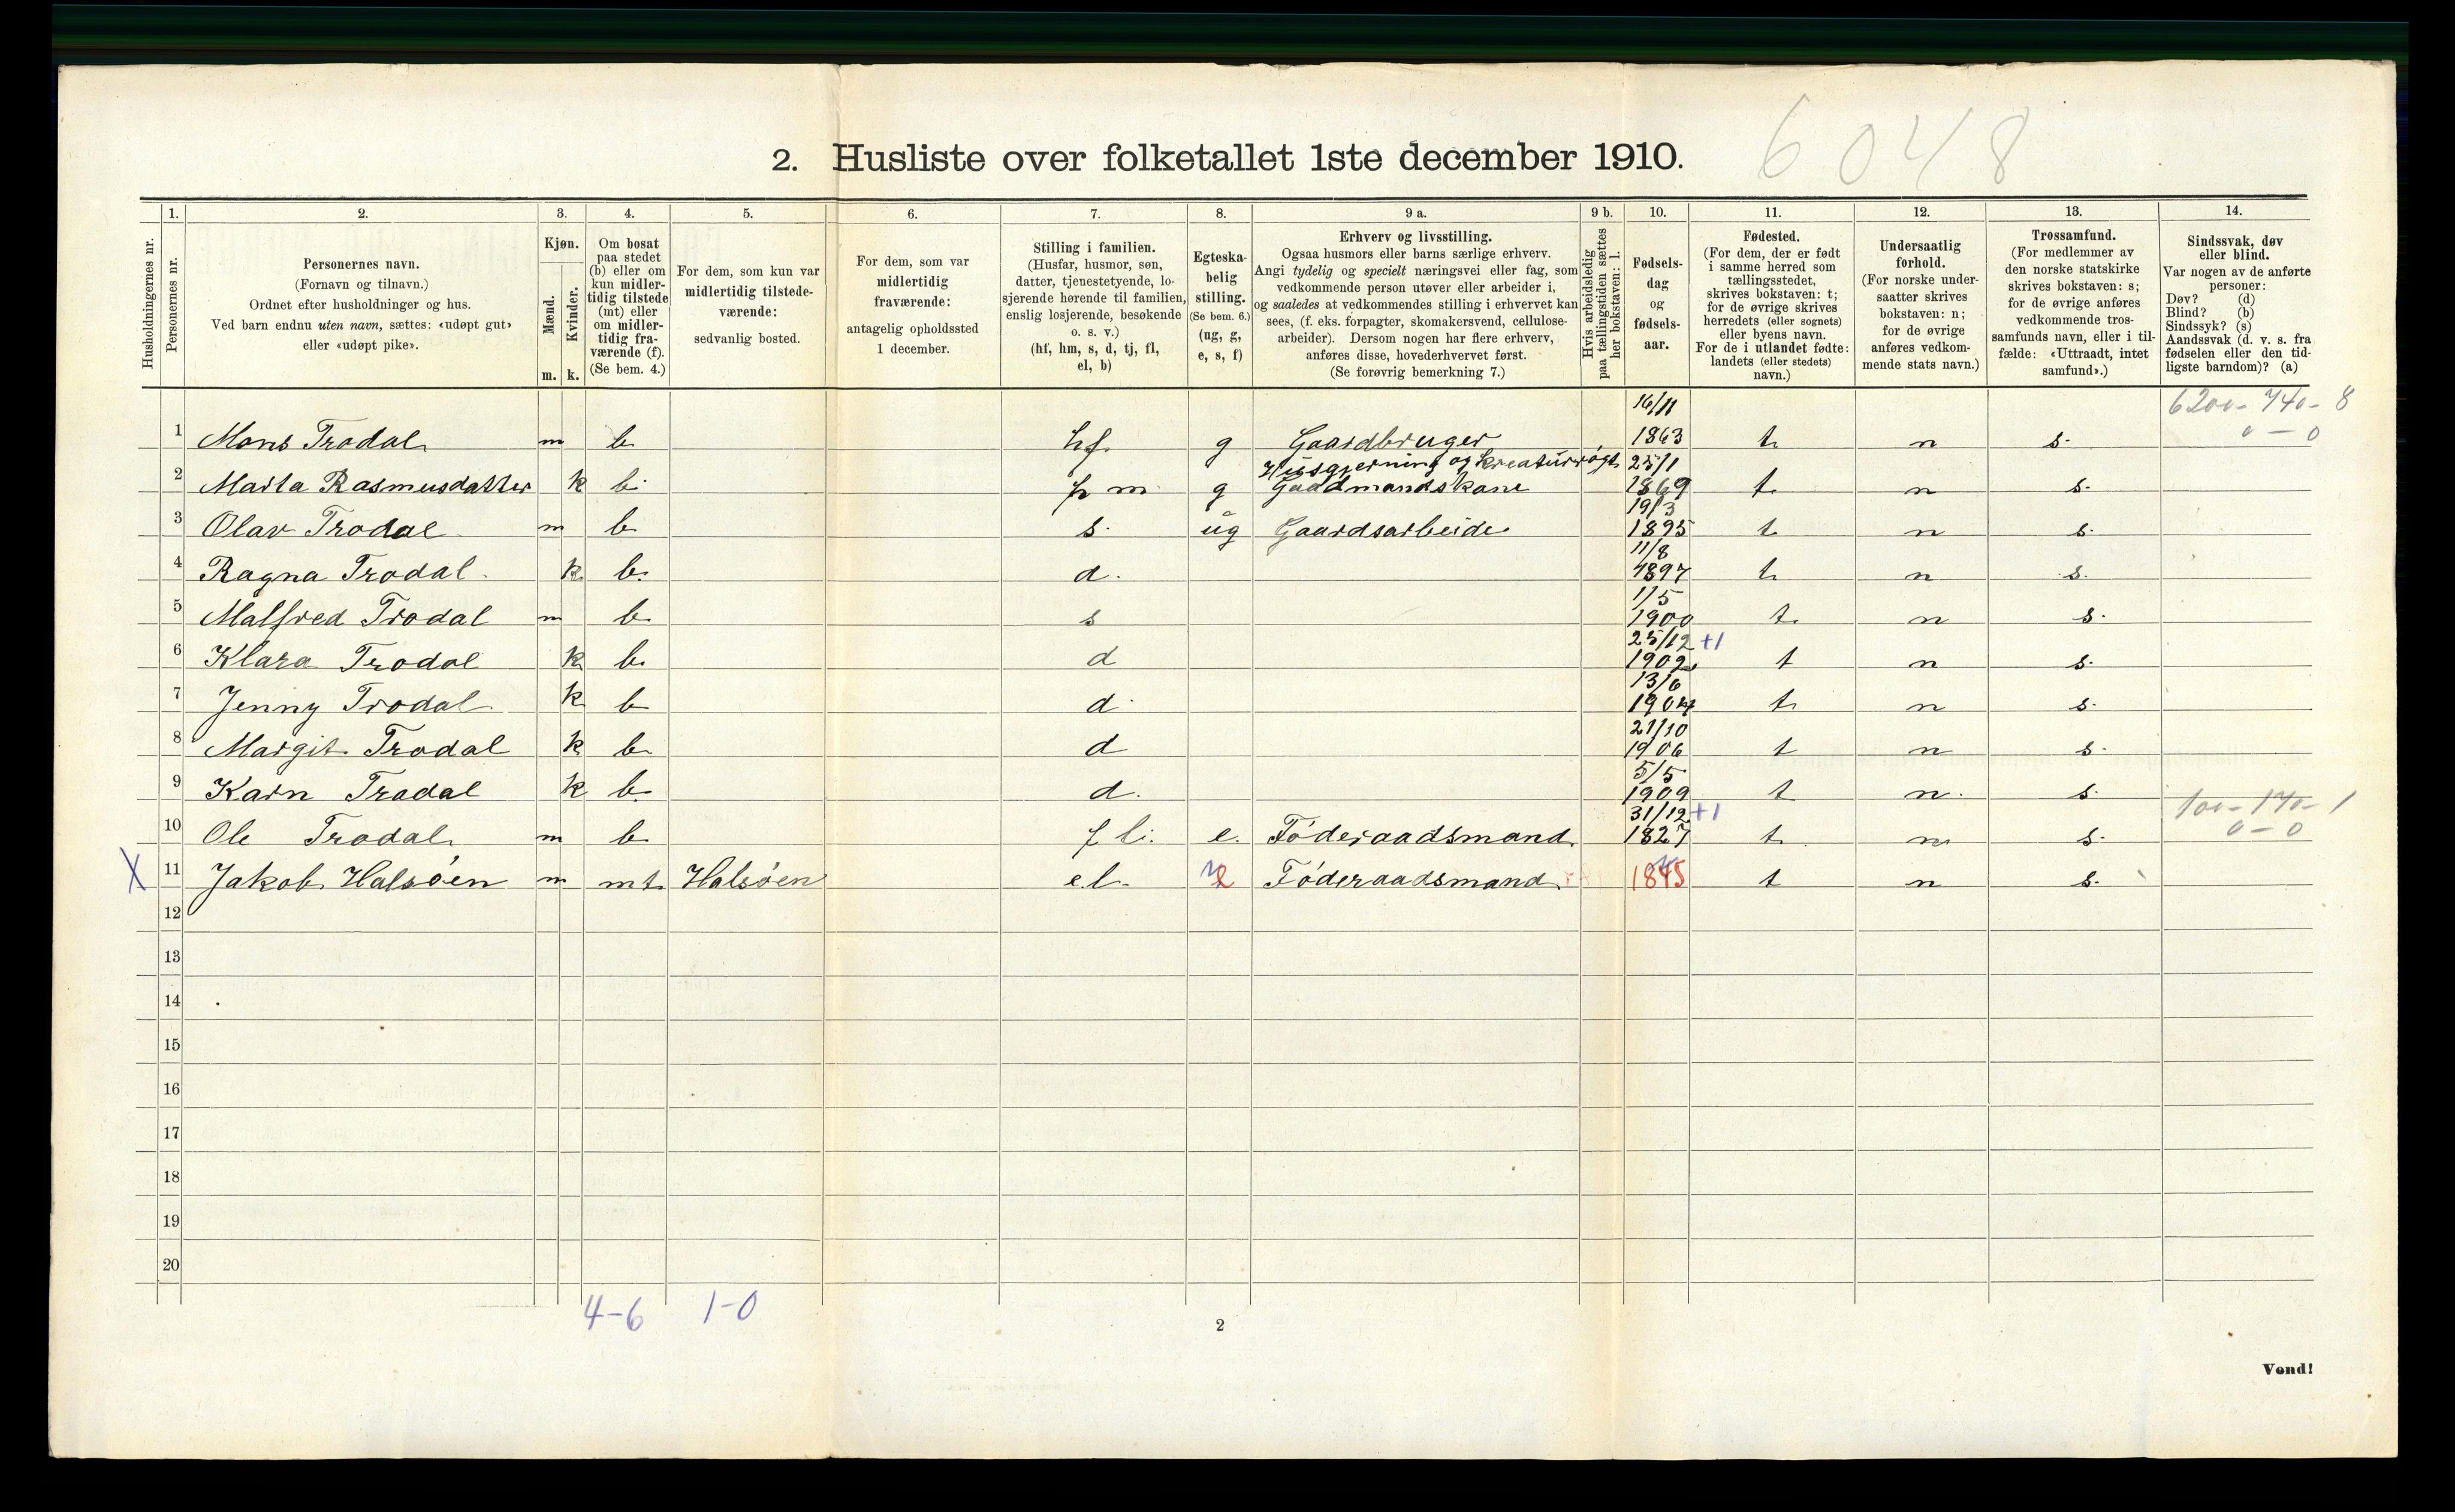 6048
2. Husliste over folketallet 1ste december 1910.
Husholdningernes nr.
1. Personernes nr.
2. Personernes navn. (Fornavn og tilnavn.) Ordnet efter husholdninger og hus. Ved barn endnu uten navn, sættes: «udøpt gut» eller «udøpt pike».
3. Kjøn. Mænd. m. Kvinder. k.
4. Om bosat paa stedet (b) eller om kun midlertidig tilstede (mt) eller om midlertidig fraværende (f). (Se bem. 4.)
5. For dem, som kun var midlertidig tilstedeværende: sedvanlig bosted.
6. For dem, som var midlertidig fraværende: antagelig opholdssted 1 december.
7. Stilling i familien. (Husfar, husmor, søn, datter, tjenestetyende, losjerende hørende til familien, enslig losjerende, besøkende o. s. v.) (hf, hm, s, d, tj, fl, el, b)
8. Egteskabelig stilling. (Se bem. 6.) (ug, g, e, s, f)
9 a. Erhverv og livsstilling. Ogsaa husmors eller barns særlige erhverv. Angi tydelig og specielt næringsvei eller fag, som vedkommende person utøver eller arbeider i, og saaledes at vedkommendes stilling i erhvervet kan sees, (f. eks. forpagter, skomakersvend, cellulosearbeider). Dersom nogen har flere erhverv, anføres disse, hovederhvervet først. (Se forøvrig bemerkning 7.)
9 b. Hvis arbeidsledig paa tællingstiden sættes her bokstaven: l.
10. Fødselsdag og fødselsaar.
11. Fødested. (For dem, der er født i samme herred som tællingsstedet, skrives bokstaven: t; for de øvrige skrives herredets (eller sognets) eller byens navn. For de i utlandet fødte: landets (eller stedets) navn.)
12. Undersaatlig forhold. (For norske undersaatter skrives bokstaven: n; for de øvrige anføres vedkommende stats navn.)
13. Trossamfund. (For medlemmer av den norske statskirke skrives bokstaven: s; for de øvrige anføres vedkommende trossamfunds navn, eller i tilfælde: «Uttraadt, intet samfund».)
14. Sindssvak, døv eller blind. Var nogen av de anførte personer: Døv? (d) Blind? (b) Sindssyk? (s) Aandssvak (d. v. s. fra fødselen eller den tidligste barndom)? (a)
1 Mons Trodal m b hf. g Gaardbruger 16/11 1863 t. n s.
2 Marta Rasmusdatter k b. hm g Husgjerning og kreaturrögt Gaadmandskone 25/1 1869 t. n s.
3 Olav Trodal m b s. ug Gaardsarbeide 19/3 1895 t n s.
4 Ragna Trodal. k b. d. 11/8 1897 t. n s.
5 Malfred Trodal m b s 1/5 1900 t. n s.
6 Klara Trodal k b. d 25/12 +1 1902 t n s.
7 Jenny Trodal k b d 13/6 1904 t. n s.
8 Margit Trodal k b d 21/10 1906 t n s.
9 Karn Trodal k b. d. 5/5 1909 t n. s.
10 Ole Trodal m b. fl. e. Föderaadsmand 31/12 +1 1827 t. n s. 0-0
X 11 Jakob Halsöen m mt Halsöen el. Föderaadsmand 1845 t n s.
12
13
14
15
16
17
18
19
20
4-6 1-0
2
Vend!